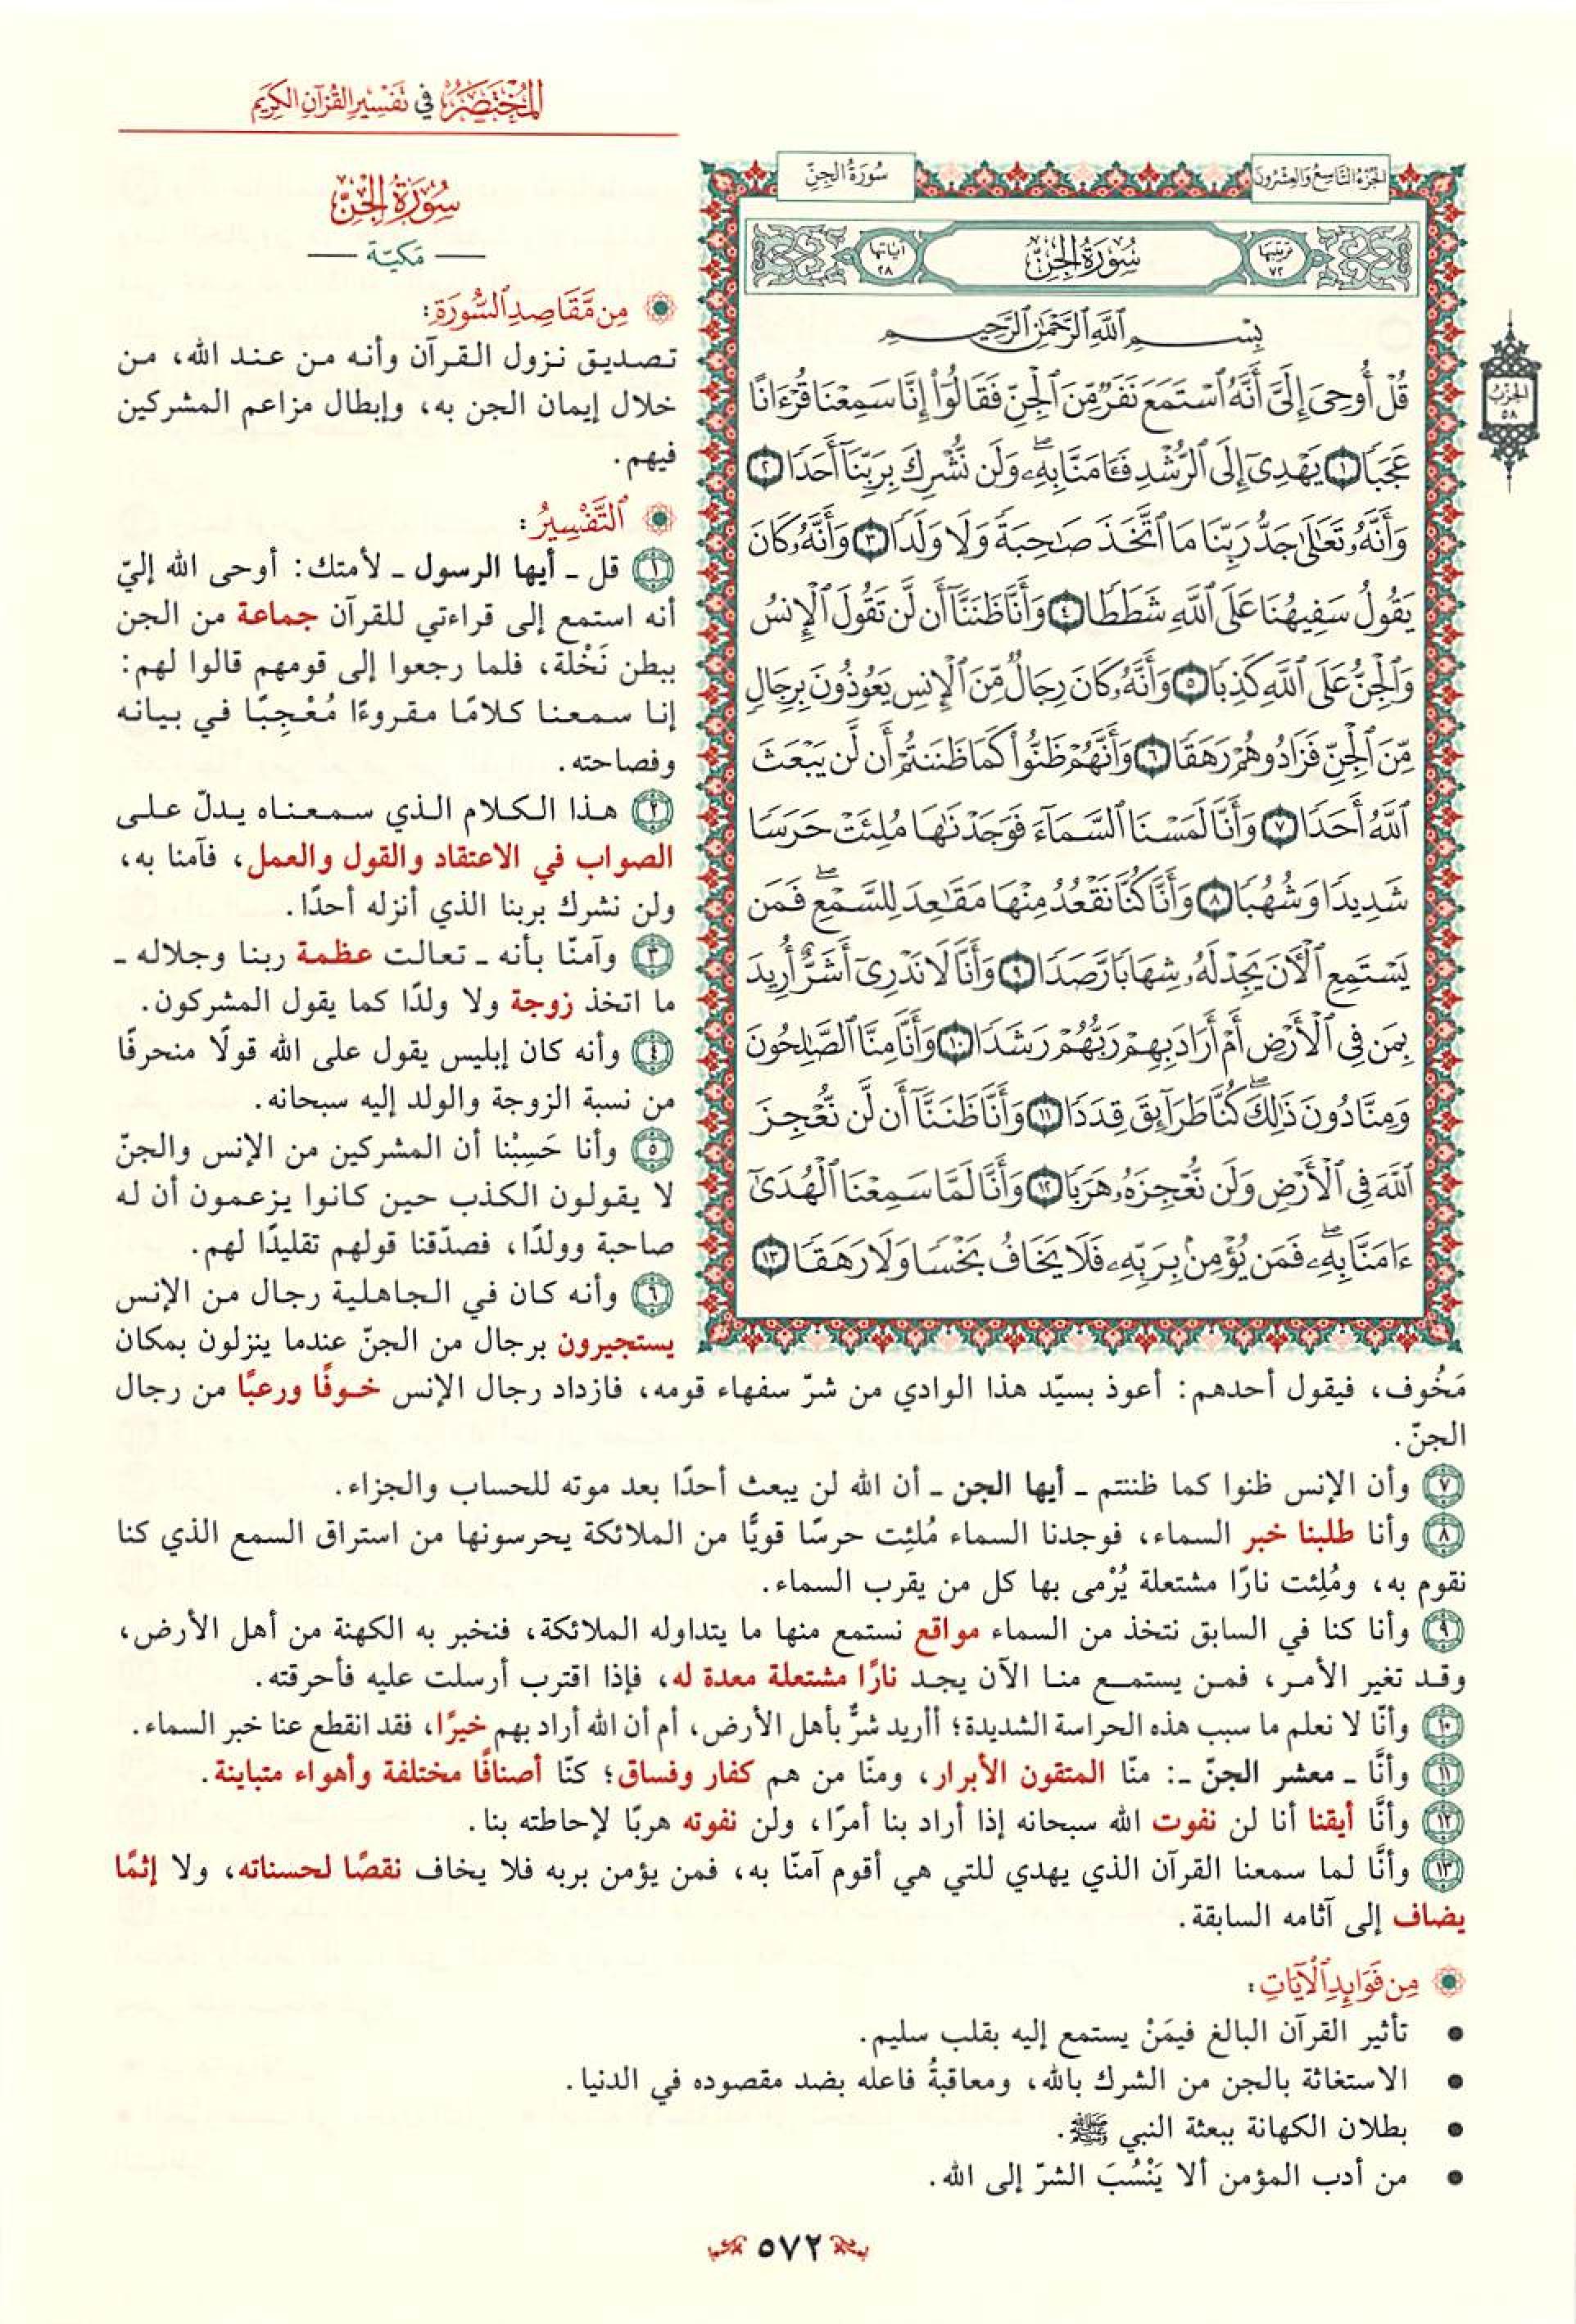 المختصر في تفسير القرآن الكريم
الجزء التاسع والعشرون
سورة الجن
ترتيبها
٧٢
سُورَةُ الجِنِّ
آياتها
٢٨
بِسْمِ ٱللَّهِ ٱلرَّحْمَٰنِ ٱلرَّحِيمِ
قُلْ أُوحِىَ إِلَىَّ أَنَّهُ ٱسْتَمَعَ نَفَرٌ مِّنَ ٱلْجِنِّ فَقَالُوٓا۟ إِنَّا سَمِعْنَا قُرْءَانًا
عَجَبًا ١ يَهْدِىٓ إِلَى ٱلرُّشْدِ فَـَٔامَنَّا بِهِۦۖ وَلَن نُّشْرِكَ بِرَبِّنَآ أَحَدًا ٢
وَأَنَّهُۥ تَعَٰلَىٰ جَدُّ رَبِّنَا مَا ٱتَّخَذَ صَٰحِبَةً وَلَا وَلَدًا ٣ وَأَنَّهُۥ كَانَ
يَقُولُ سَفِيهُنَا عَلَى ٱللَّهِ شَطَطًا ٤ وَأَنَّا ظَنَنَّآ أَن لَّن تَقُولَ ٱلْإِنسُ
وَٱلْجِنُّ عَلَى ٱللَّهِ كَذِبًا ٥ وَأَنَّهُۥ كَانَ رِجَالٌ مِّنَ ٱلْإِنسِ يَعُوذُونَ بِرِجَالٍ
مِّنَ ٱلْجِنِّ فَزَادُوهُمْ رَهَقًا ٦ وَأَنَّهُمْ ظَنُّوا۟ كَمَا ظَنَنتُمْ أَن لَّن يَبْعَثَ
ٱللَّهُ أَحَدًا ٧ وَأَنَّا لَمَسْنَا ٱلسَّمَآءَ فَوَجَدْنَٰهَا مُلِئَتْ حَرَسًا
شَدِيدًا وَشُهُبًا ٨ وَأَنَّا كُنَّا نَقْعُدُ مِنْهَا مَقَٰعِدَ لِلسَّمْعِۖ فَمَن
يَسْتَمِعِ ٱلْـَٔانَ يَجِدْ لَهُۥ شِهَابًا رَّصَدًا ٩ وَأَنَّا لَا نَدْرِىٓ أَشَرٌّ أُرِيدَ
بِمَن فِى ٱلْأَرْضِ أَمْ أَرَادَ بِهِمْ رَبُّهُمْ رَشَدًا ١٠ وَأَنَّا مِنَّا ٱلصَّٰلِحُونَ
وَمِنَّا دُونَ ذَٰلِكَۖ كُنَّا طَرَآئِقَ قِدَدًا ١١ وَأَنَّا ظَنَنَّآ أَن لَّن نُّعْجِزَ
ٱللَّهَ فِى ٱلْأَرْضِ وَلَن نُّعْجِزَهُۥ هَرَبًا ١٢ وَأَنَّا لَمَّا سَمِعْنَا ٱلْهُدَىٰٓ
ءَامَنَّا بِهِۦۖ فَمَن يُؤْمِنۢ بِرَبِّهِۦ فَلَا يَخَافُ بَخْسًا وَلَا رَهَقًا ١٣
الحزب
٥٨
سُورَةُ الجِنِّ
مَكيّة
مِن مَّقَاصِدِ السُّورَةِ:
تصديق نزول القرآن وأنه من عند الله، من
خلال إيمان الجن به، وإبطال مزاعم المشركين
فيهم.
التَّفْسِيرُ:
١ قل ـ أيها الرسول ـ لأمتك: أوحى الله إليّ
أنه استمع إلى قراءتي للقرآن جماعة من الجن
ببطن نَخْلَة، فلما رجعوا إلى قومهم قالوا لهم:
إنا سمعنا كلامًا مقروءًا مُعْجِبًا في بيانه
وفصاحته.
٢ هذا الكلام الذي سمعناه يدلّ على
الصواب في الاعتقاد والقول والعمل، فآمنا به،
ولن نشرك بربنا الذي أنزله أحدًا.
٣ وآمنّا بأنه ـ تعالت عظمة ربنا وجلاله ـ
ما اتخذ زوجة ولا ولدًا كما يقول المشركون.
٤ وأنه كان إبليس يقول على الله قولًا منحرفًا
من نسبة الزوجة والولد إليه سبحانه.
٥ وأنا حَسِبْنا أن المشركين من الإنس والجنّ
لا يقولون الكذب حين كانوا يزعمون أن له
صاحبة وولدًا، فصدّقنا قولهم تقليدًا لهم.
٦ وأنه كان في الجاهلية رجال من الإنس
يستجيرون برجال من الجنّ عندما ينزلون بمكان
مَخُوف، فيقول أحدهم: أعوذ بسيّد هذا الوادي من شرّ سفهاء قومه، فازداد رجال الإنس خوفًا ورعبًا من رجال
الجنّ.
٧ وأن الإنس ظنوا كما ظننتم ـ أيها الجن ـ أن الله لن يبعث أحدًا بعد موته للحساب والجزاء.
٨ وأنا طلبنا خبر السماء، فوجدنا السماء مُلِئت حرسًا قويًّا من الملائكة يحرسونها من استراق السمع الذي كنا
نقوم به، ومُلِئت نارًا مشتعلة يُرْمى بها كل من يقرب السماء.
٩ وأنا كنا في السابق نتخذ من السماء مواقع نستمع منها ما يتداوله الملائكة، فنخبر به الكهنة من أهل الأرض،
وقد تغير الأمر، فمن يستمع منا الآن يجد نارًا مشتعلة معدة له، فإذا اقترب أرسلت عليه فأحرقته.
١٠ وأنّا لا نعلم ما سبب هذه الحراسة الشديدة؛ أأريد شرٌّ بأهل الأرض، أم أن الله أراد بهم خيرًا، فقد انقطع عنا خبر السماء.
١١ وأنَّا ـ معشر الجنّ ـ: منّا المتقون الأبرار، ومنّا من هم كفار وفساق؛ كنّا أصنافًا مختلفة وأهواء متباينة.
١٢ وأنَّا أيقنا أنا لن نفوت الله سبحانه إذا أراد بنا أمرًا، ولن نفوته هربًا لإحاطته بنا.
١٣ وأنَّا لما سمعنا القرآن الذي يهدي للتي هي أقوم آمنّا به، فمن يؤمن بربه فلا يخاف نقصًا لحسناته، ولا إثمًا
يضاف إلى آثامه السابقة.
مِن فَوَائِدِ الآيَاتِ:
• تأثير القرآن البالغ فيمَنْ يستمع إليه بقلب سليم.
• الاستغاثة بالجن من الشرك بالله، ومعاقبةُ فاعله بضد مقصوده في الدنيا.
• بطلان الكهانة ببعثة النبي ﷺ.
• من أدب المؤمن ألا يَنْسُبَ الشرّ إلى الله.
٥٧٢